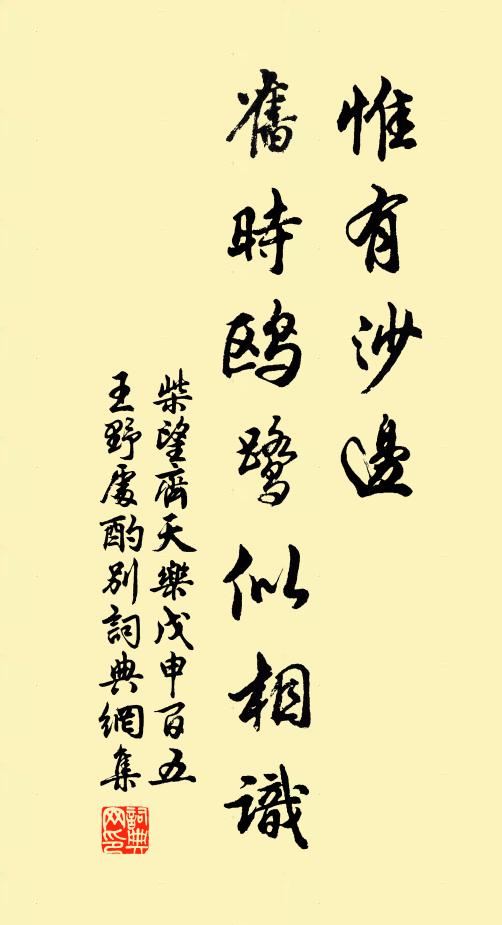 惟有沙邊
舊時鸥鹭似相識
柴望齊天樂戊申百五
王野處酌别詞典網集
詞典网印